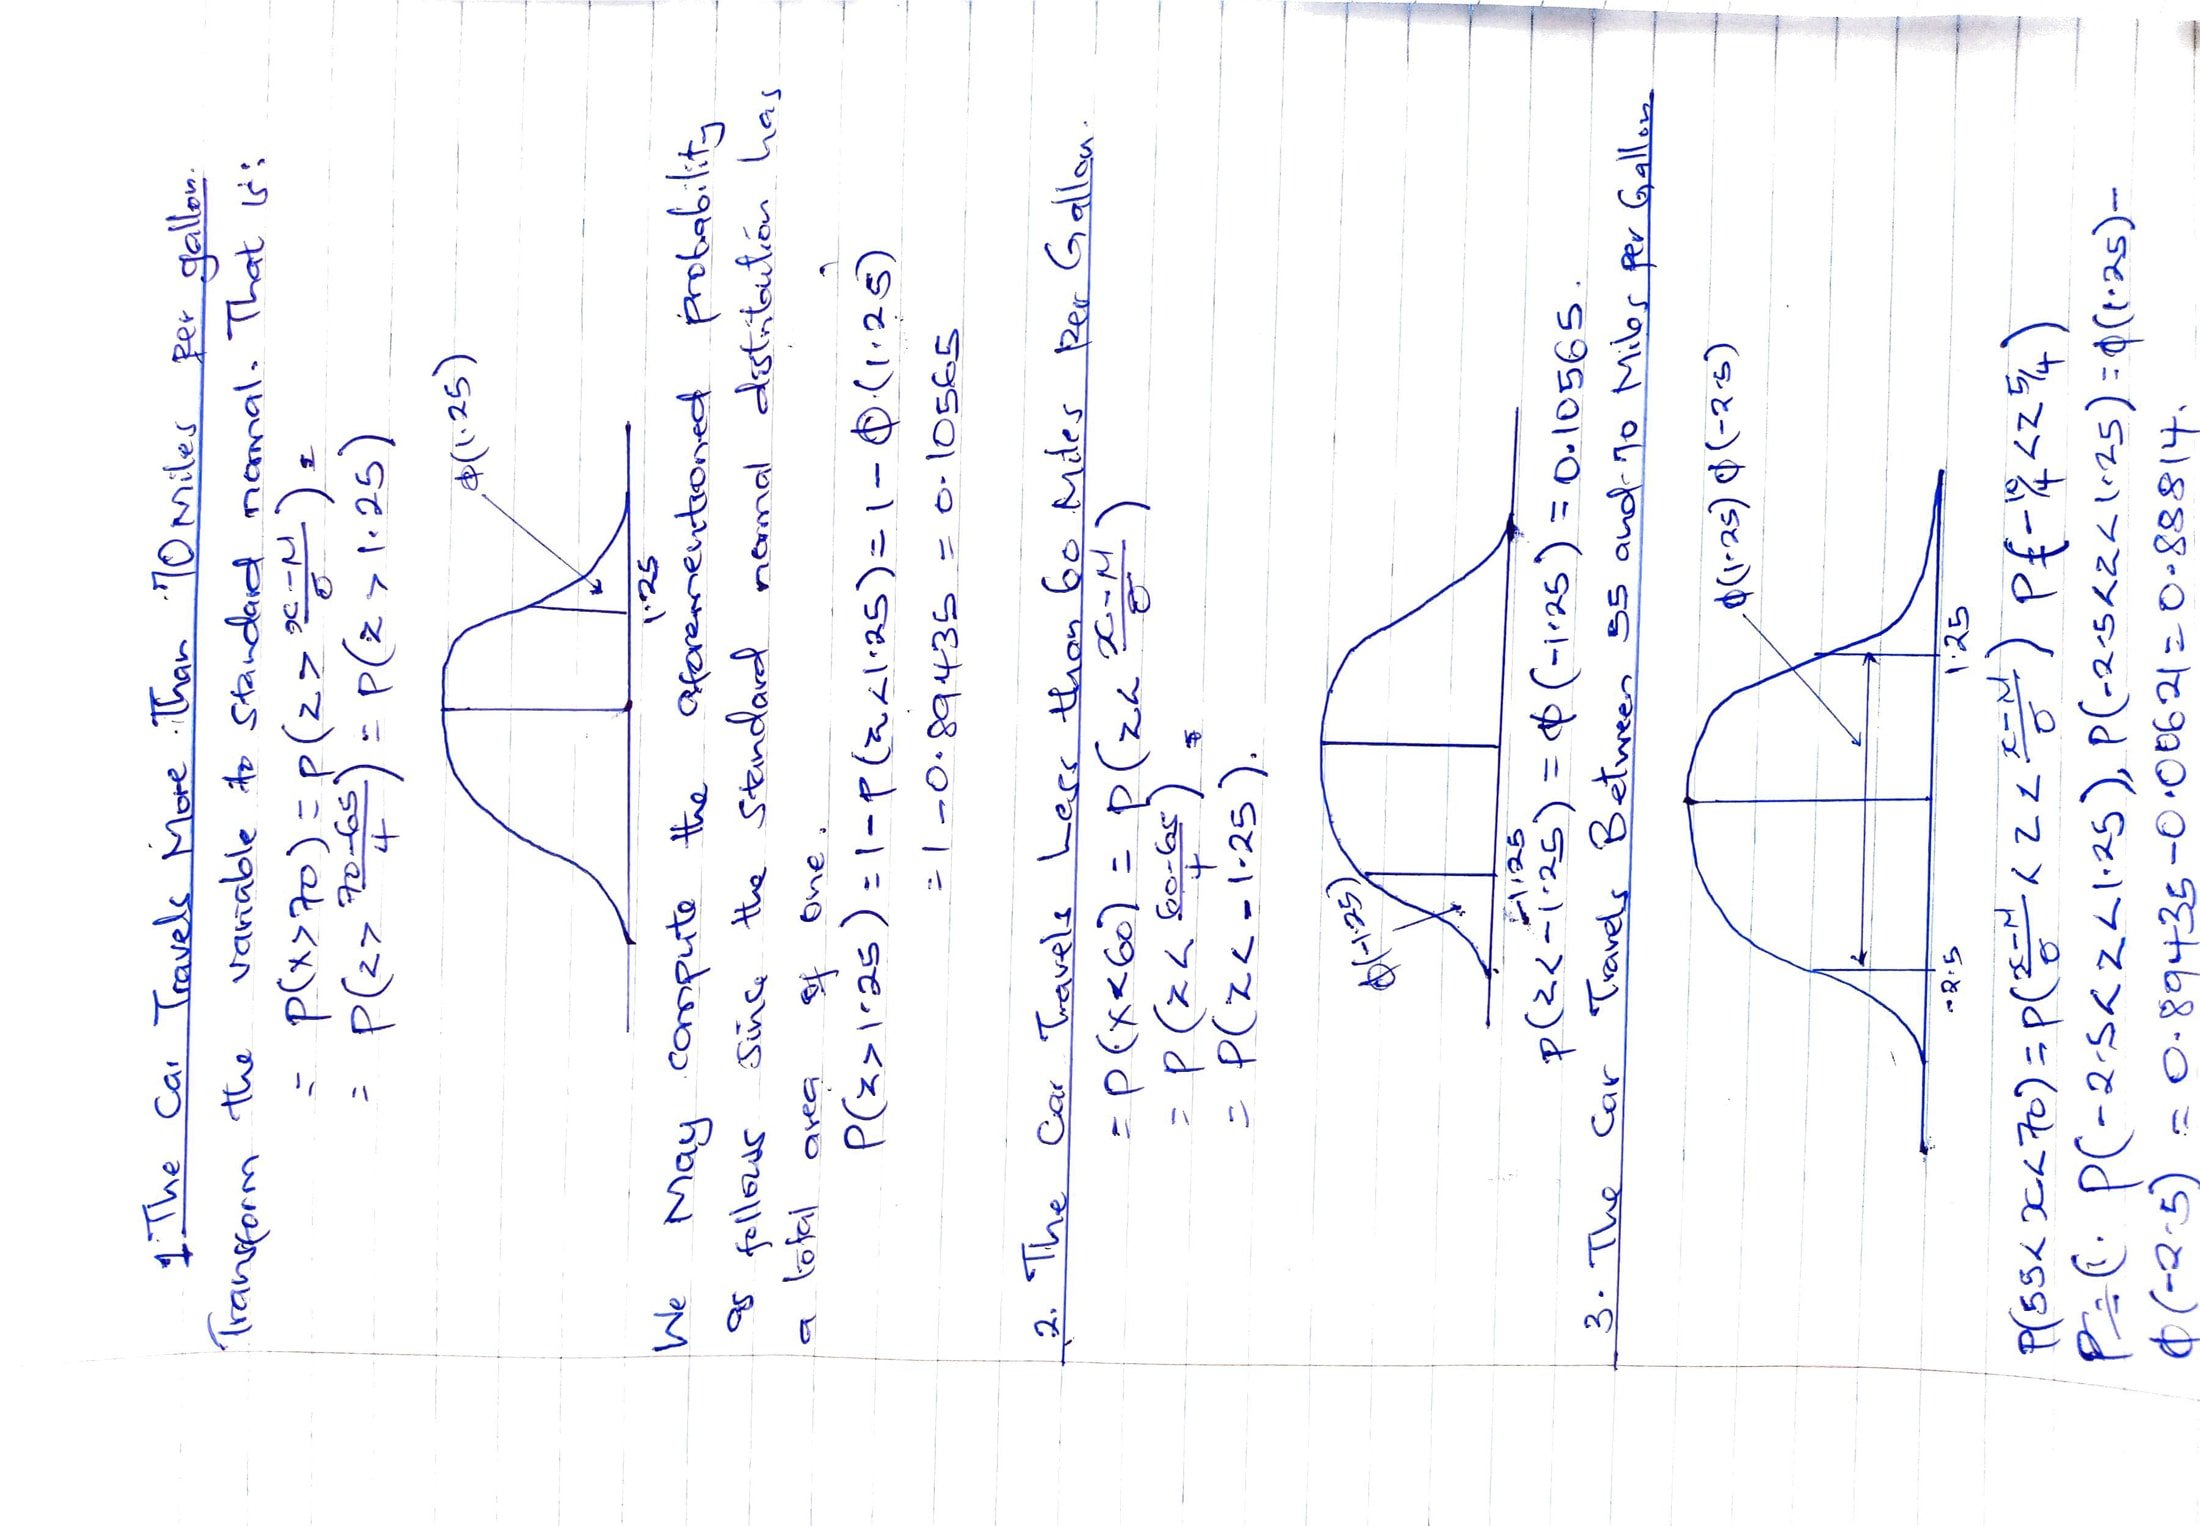 1. The Car Travels More Than 70 Miles per gallon.
Transform the variable to standard normal. That is:
= P(x>70) = P(z > x-μ/σ) =
= P(z> 70-65/4) = P(z > 1.25)
φ(1.25)
1.25
We May compute the aforementioned probability
as follows since the standard normal distribution has
a total area of one.
P(z>1.25) = 1 - P(z<1.25) = 1 - Φ(1.25)
= 1 - 0.89435 = 0.10565
2. The Car Travels Less than 60 Miles Per Gallon.
= P(x<60) = P(z< x-μ/σ)
= P(z< 60-65/4) =
= P(z< -1.25).
φ(-1.25)
-1.25
P(z<-1.25) = φ(-1.25) = 0.10565.
3. The Car Travels Between 55 and 70 Miles per Gallon
φ(1.25) φ(-2.5)
-2.5 1.25
P(55<x<70) = P(x-μ/σ < z < x-μ/σ) P(-10/4 <z 5/4)
P=(. P(-2.5<z<1.25), P(-2.5<z<1.25) = φ(1.25)-
φ(-2.5) = 0.89435-0.00621 = 0.88814.